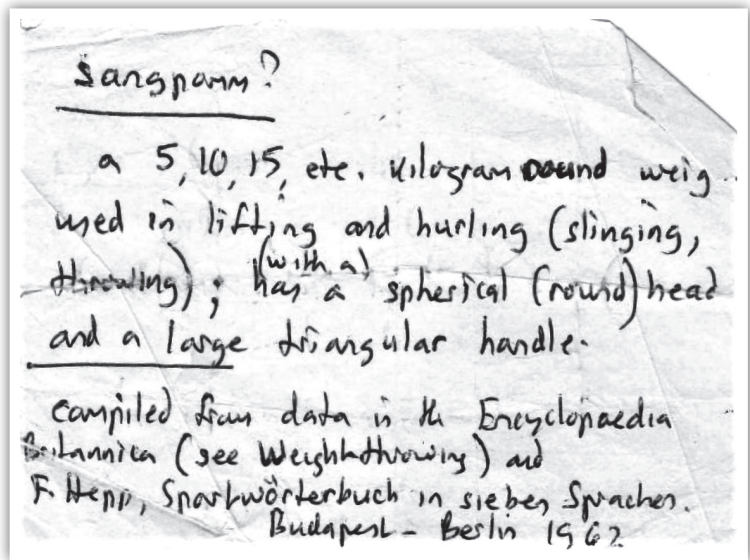 Sangparm?
a 5, 10, 15, etc. kilogram round weig
used in lifting and hurling (slinging,
throwing); has a (with a) spherical (round) head
and a large triangular handle.
Compiled from data in the Encyclopaedia
Britannica (see Weight-throwing) and
F. Hepp, Sportwörterbuch in sieben Sprachen.
Budapest – Berlin 1962